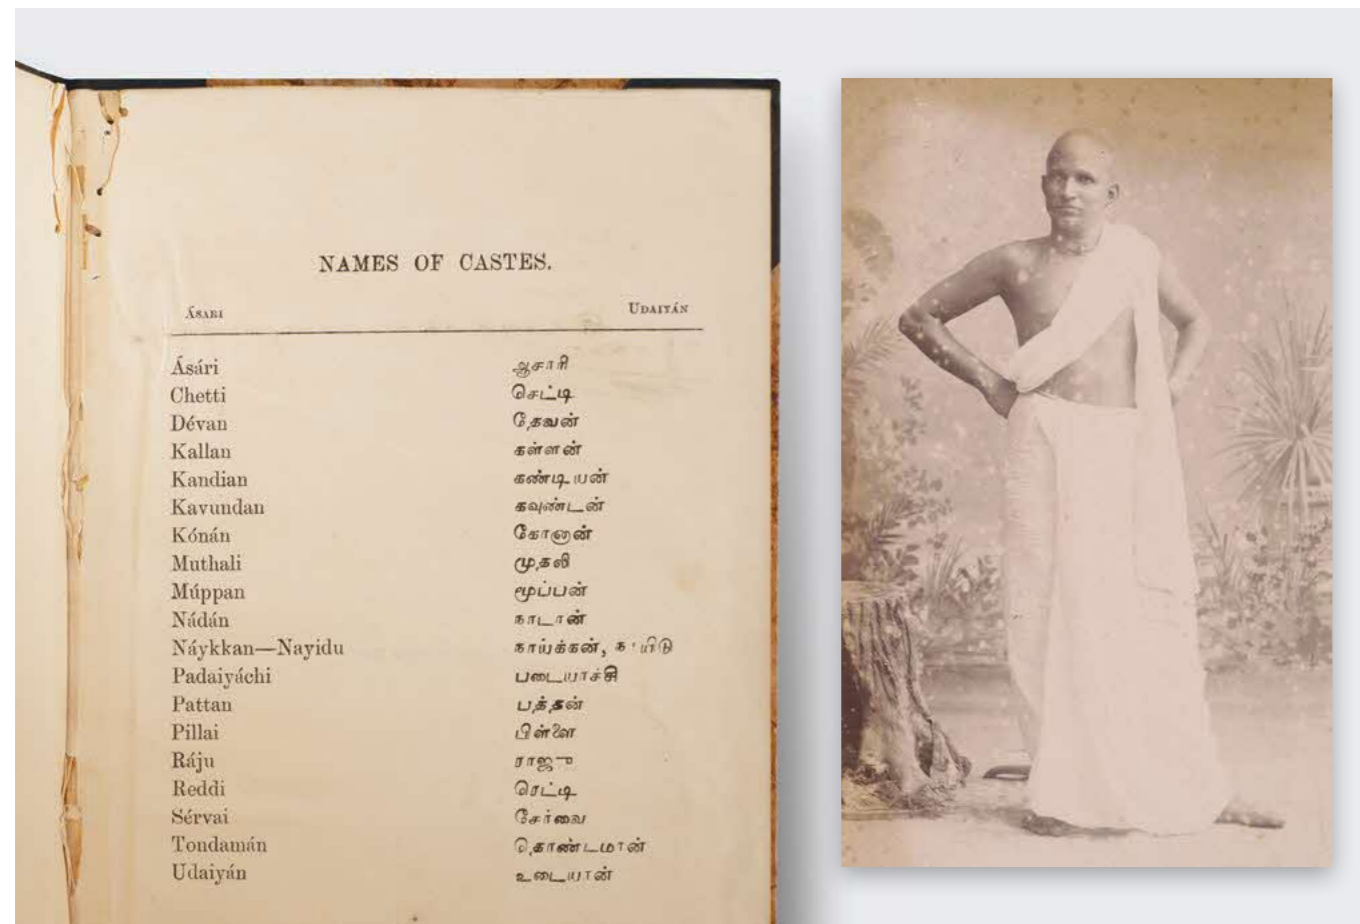 NAMES OF CASTES.
ÁSARI UDAIYÁN
Ásári ஆசாரி
Chetti செட்டி
Dévan தேவன்
Kallan கள்ளன்
Kandian கண்டியன்
Kavundan கவுண்டன்
Kónán கோனான்
Muthali முதலி
Múppan மூப்பன்
Nádán நாடான்
Náykkan—Nayidu நாய்க்கன், நாயிடு
Padaiyáchi படையாச்சி
Pattan பத்தன்
Pillai பிள்ளை
Ráju ராஜு
Reddi ரெட்டி
Sérvai சேர்வை
Tondamán தொண்டமான்
Udaiyán உடையான்